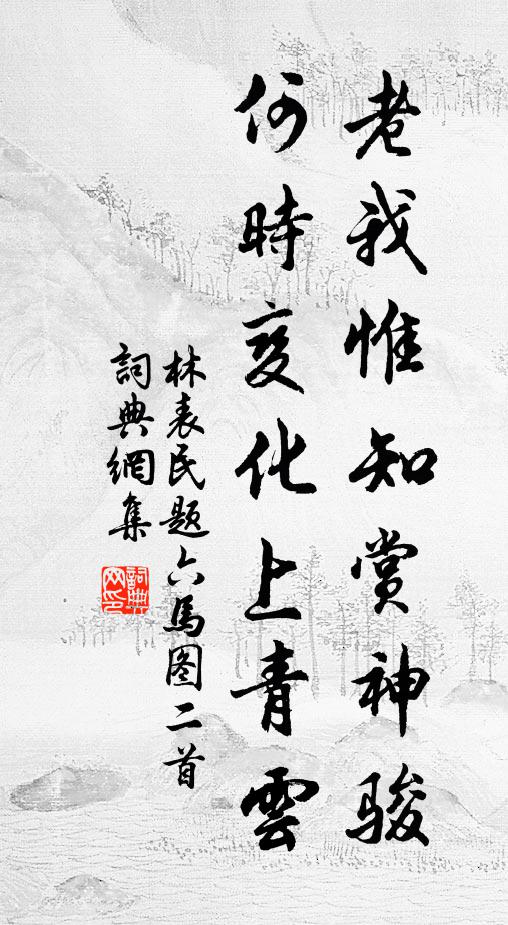 老我惟知赏神骏
何時变化上青雲
林表民题六馬图二首
詞典網集
詞典
网印